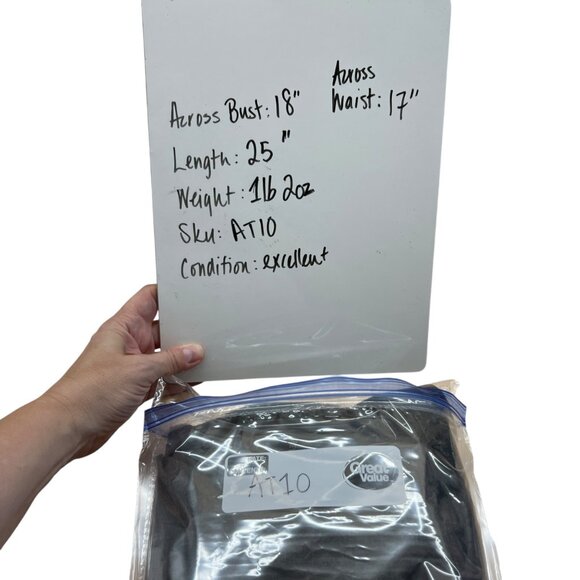 Across Bust: 18"
Across
Waist: 17"
Length: 25"
Weight: 1lb 2oz
Sku: AT10
Condition: excellent
Great
Value
AT10